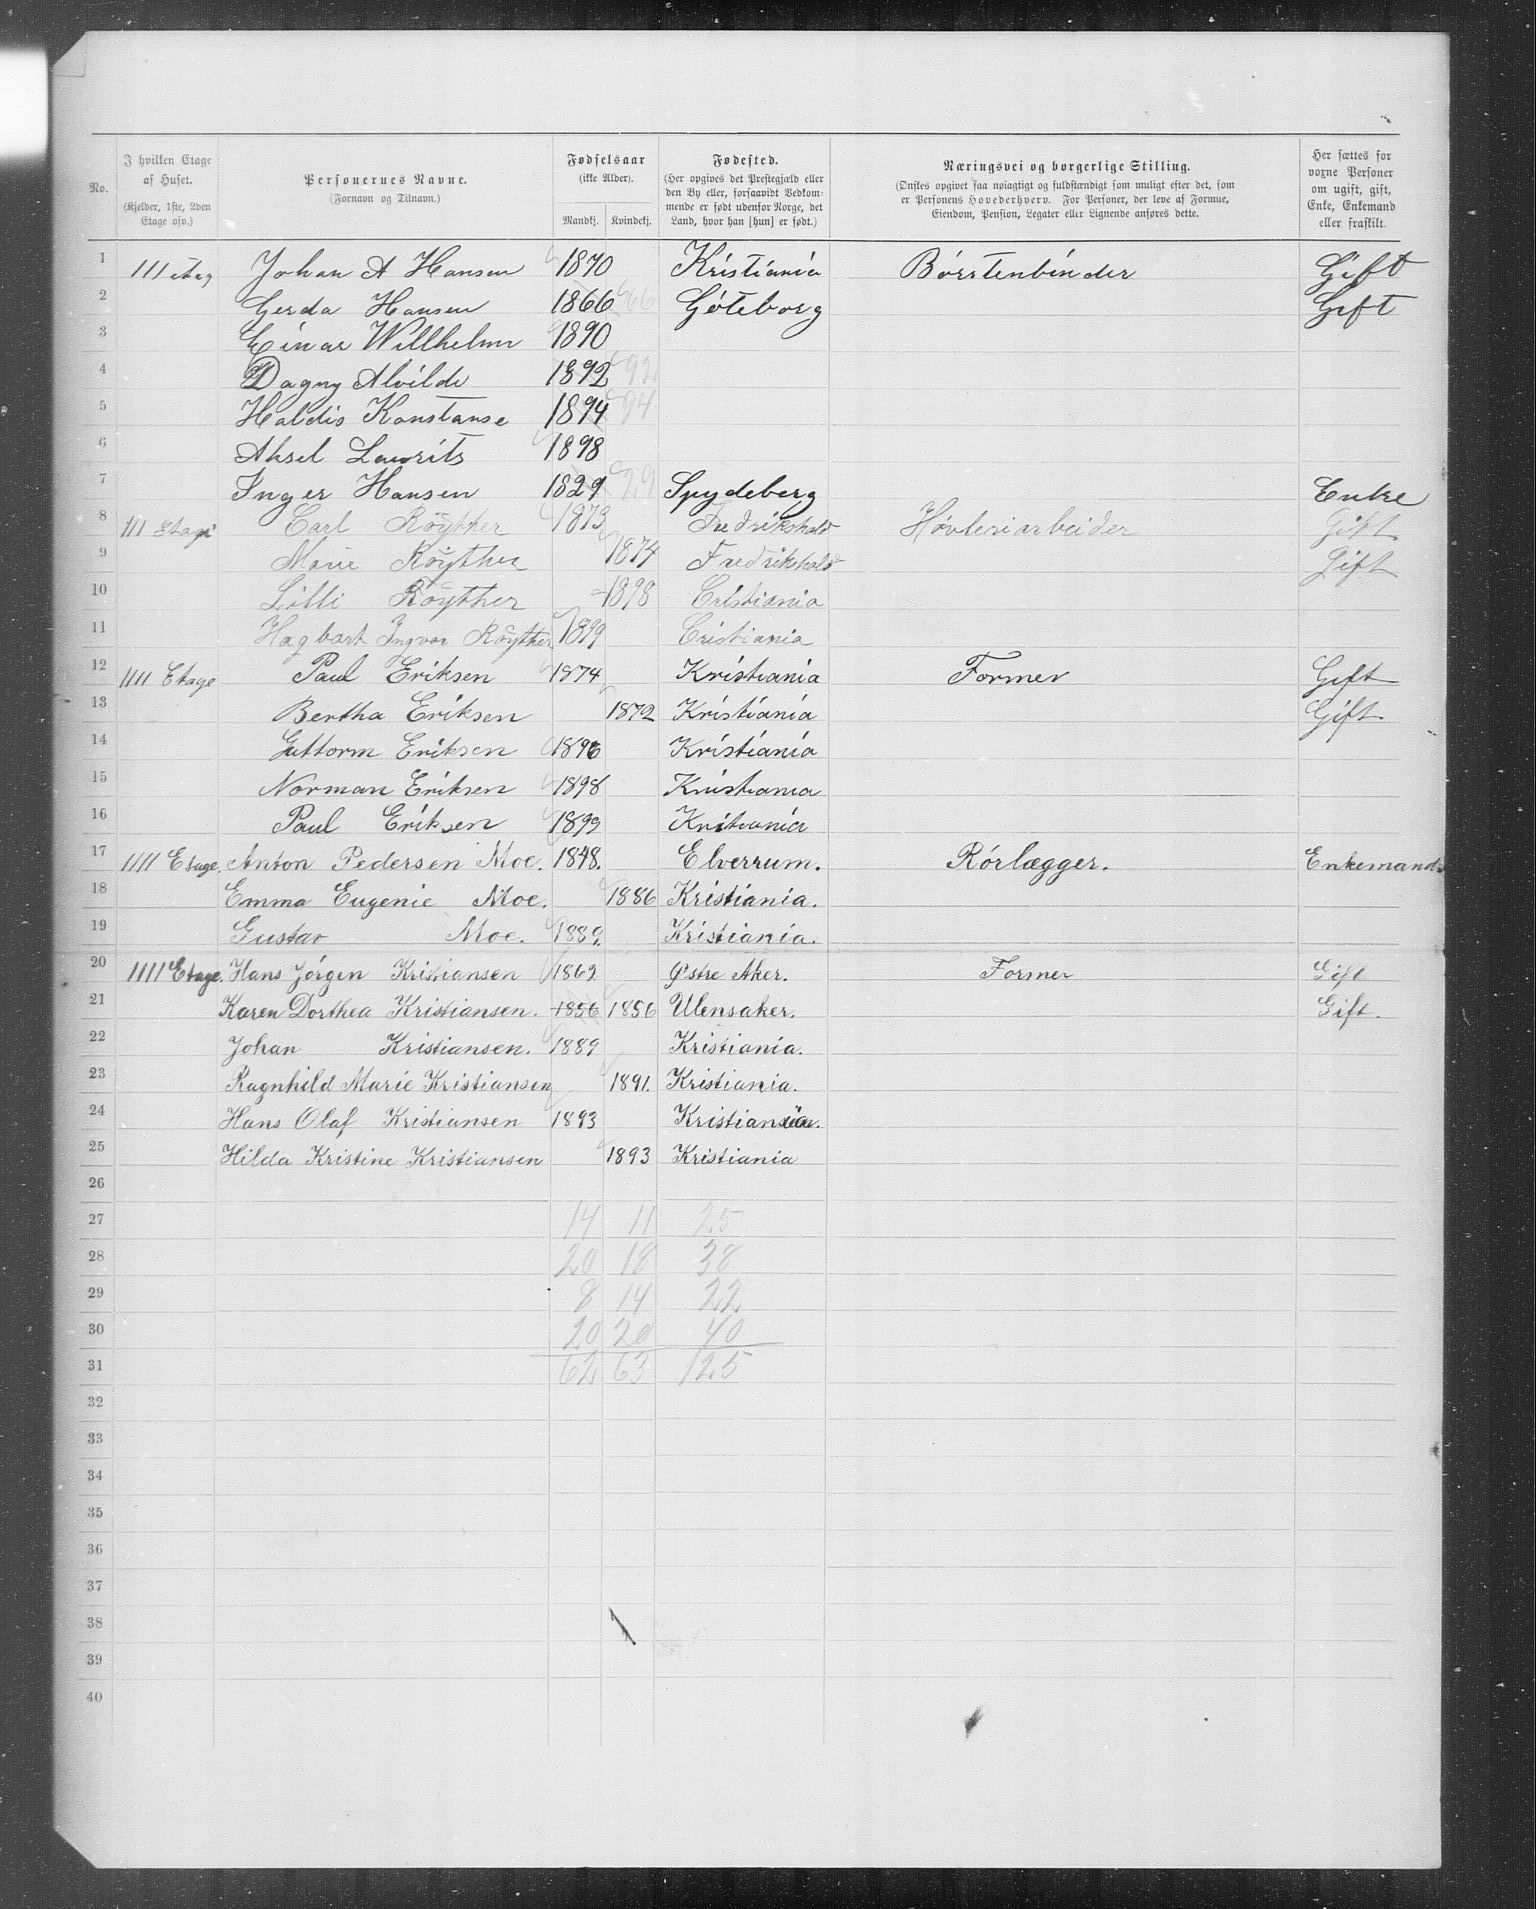 No.
I hvilken Etage af Huset.
(Kjelder, 1ste, 2den Etage osv.)
Personernes Navne.
(Fornavn og Tilnavn.)
Fødselsaar
(ikke Alder).
Mandkj. Kvindekj.
Fødested.
(Her opgives det Prestegjæld eller den By eller, forsaavidt Vedkommende er født udenfor Norge, det Land, hvor han [hun] er født.)
Næringsvei og borgerlige Stilling.
(Ønskes opgivet saa nøiagtigt og fuldstændigt som muligt efter det, som er Personens Hovederhverv. For Personer, der leve af Formue, Eiendom, Pension, Legater eller Lignende anføres dette.
Her sættes for voxne Personer om ugift, gift, Enke, Enkemand eller fraskilt.
1 111 etag Johan A Hansen 1870 Kristiania Börstenbinder Gift
2 Gerda Hansen 1866 66 Göteborg Gift
3 Einar Willhelm 1890
4 Dagny Alvilde 1892 92
5 Haldis Konstanse 1894 94
6 Aksel Lauritz 1898
7 Inger Hansen 1829 29 Spydeberg Enke
8 111 Etage Carl Röyther 1873 Fredrikshald Høvleriarbeider Gift
9 Marie Röyther 1874 Fredrikshald Gift
10 Lilli Röyther 1898 Cristiania
11 Hagbart Ingvar Röyther 1899 Cristiania
12 1111 Etage Paul Eriksen 1874 Kristiania Former Gift
13 Bertha Eriksen 1872 Kristiania Gift
14 Guttorm Eriksen 1896 Kristiania
15 Norman Eriksen 1898 Kristiania
16 Paul Eriksen 1899 Kristiania
17 1111 Etage. Anton Pedersen Moe. 1848. Elverrum. Rörlægger. Enkemand.
18 Emma Eugenie Moe. 1886 Kristiania.
19 Gustav Moe. 1889. Kristiania.
20 1111 Etage. Hans Jörgen Kristiansen 1869 Østre Aker. Former Gift
21 Karen Dorthea Kristiansen. 1856 1856 Ulensaker. Gift.
22 Johan Kristiansen. 1889 Kristiania.
23 Ragnhild Marie Kristiansen 1891. Kristiania.
24 Hans Olaf Kristiansen 1893 Kristiania.
25 Hilda Kristine Kristiansen 1893 Kristiania
26
27 14 11 25
28 20 18 38
29 8 14 22
30 20 20 40
31 62 63 125
32
33
34
35
36
37
38
39
40